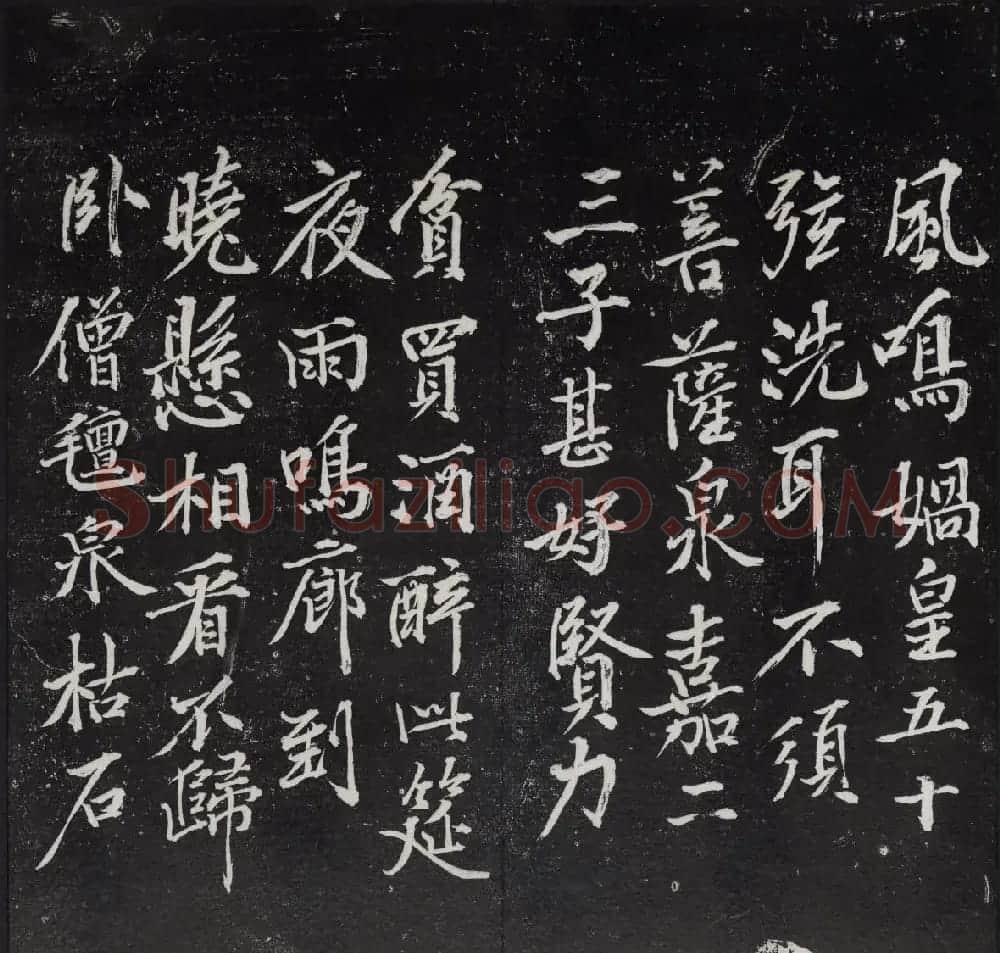 風鳴媧皇五十
弦洗耳不須
菩薩泉嘉二
三子甚好賢力
貧買酒醉此筵
夜雨鳴廊到
曉懸相看不歸
卧僧氊泉枯石
Shufaziliao.COM